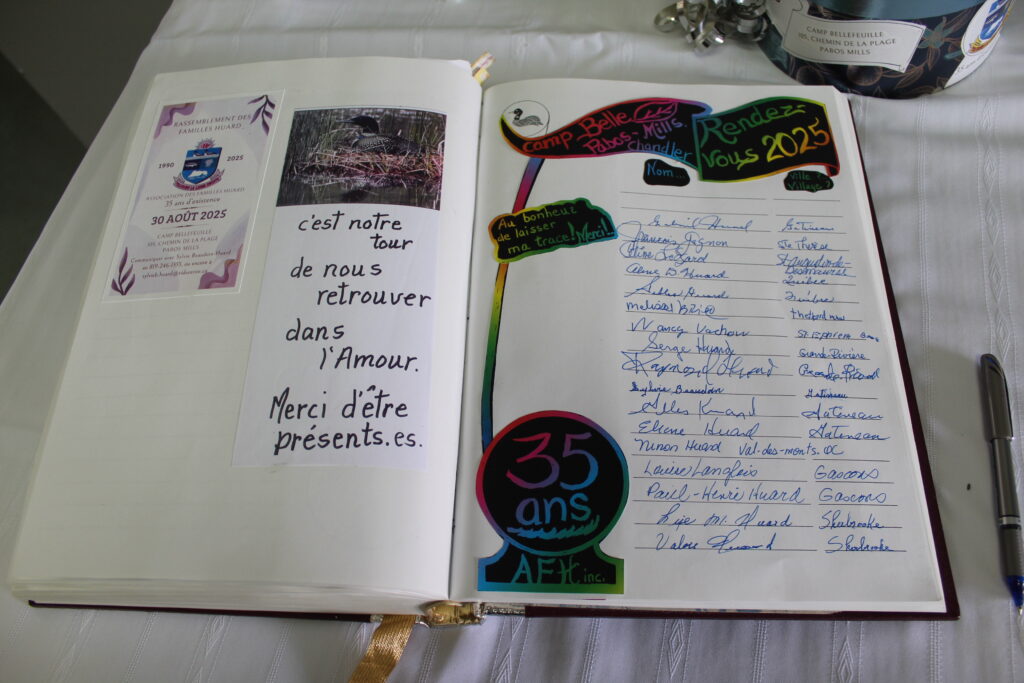 RASSEMBLEMENT DES
FAMILLES HUARD
1990 2025
ASSOCIATION DES FAMILLES HUARD
35 ans d'existence
30 AOÛT 2025
CAMP BELLEFEUILLE
105, CHEMIN DE LA PLAGE
PABOS MILLS
Communiquer avec Sylvie Beaudon-Huard
c'est notre
tour
de nous
retrouver
dans
l'Amour.
Merci d'être
présents.es.
Camp-Belle
Pabos-Mills.
chandler
Rendez-
vous 2025
Nom...
Ville?
Village?
Au bonheur
de laisser
ma trace! Merci!
Huard Gatineau
François Gagnon Ste Thérèse
Aline Légard St-Augustin-de-
Desmaures
Aline B. Huard Québec
Gilles Huard Québec
Nancy Vachon
Serge Huard Grande-Rivière
Raymond Huard
Sylvie Beaudon Gatineau
Gilles Huard Gatineau
Eliane Huard Gatineau
Ninon Huard Val-des-monts. QC
Louise Langlois Gascons
Paul-Henri Huard Gascons
Lise M. Huard Sherbrooke
Valois Huard Sherbrooke
35
ans
AFH inc.
CAMP BELLEFEUILLE
105, CHEMIN DE LA PLAGE
PABOS MILLS